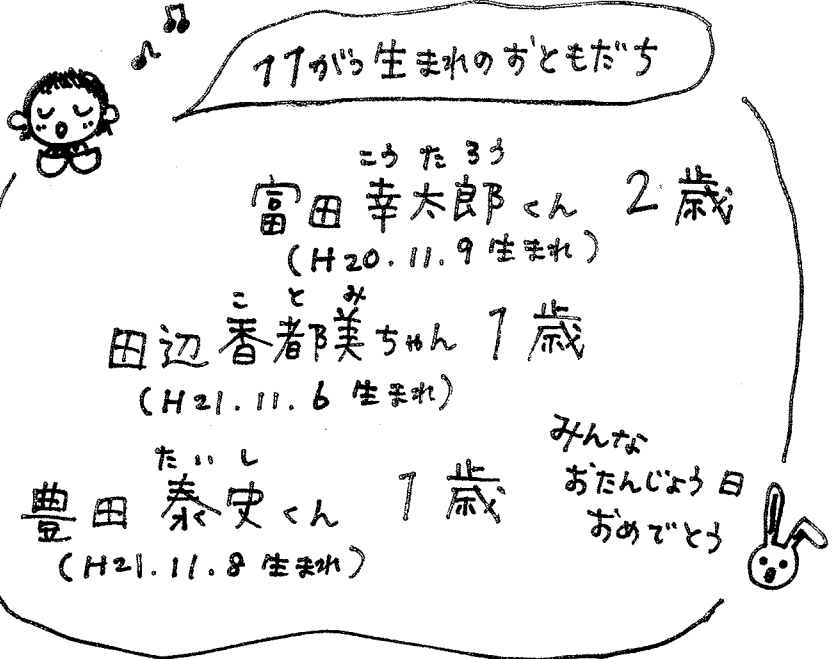 11がつ生まれのおともだち
こうたろう
富田 幸太郎くん 2歳
(H20.11.9 生まれ)
ことみ
田辺 香都美ちゃん 1歳
(H21.11.6 生まれ)
たいし
豊田 泰史くん 1歳
(H21.11.8 生まれ)
みんな
おたんじょう日
おめでとう